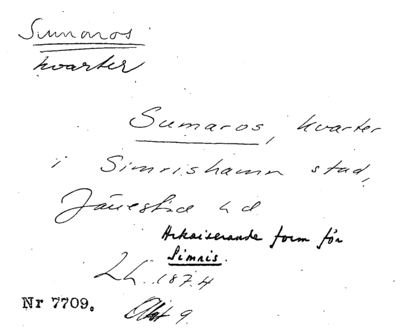 Sumaros
kvarter
Sumaros, kvarter
i Simrishamn stad,
Järrestad hd
Arkaiserande form för
Simris.
Lh. 1874
Nr 7709.